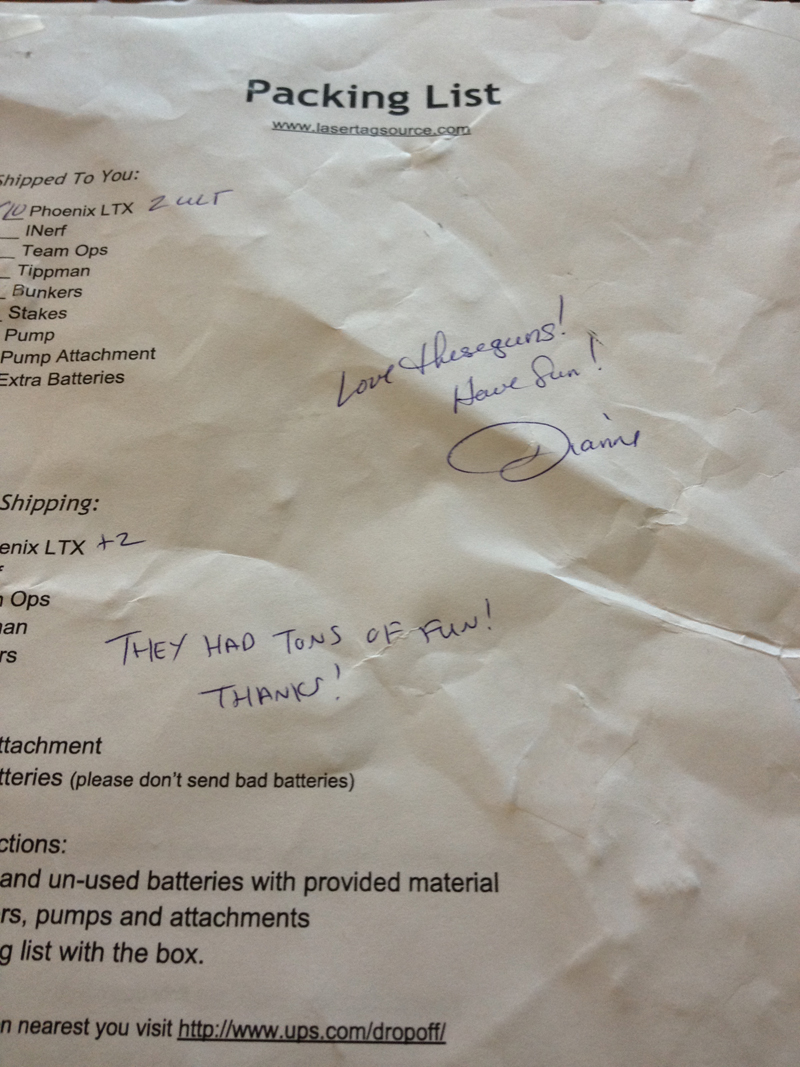 Packing List
www.lasertagsource.com
Shipped To You:
10 Phoenix LTX 2 ULT
__ INerf
_ Team Ops
_ Tippman
_ Bunkers
Stakes
Pump
Pump Attachment
Extra Batteries
Love these guns!
Have fun!
Dianne
Shipping:
enix LTX +2
Ops
an
rs
THEY HAD TONS OF FUN!
THANKS!
ttachment
tteries (please don't send bad batteries)
ctions:
and un-used batteries with provided material
rs, pumps and attachments
g list with the box.
n nearest you visit http://www.ups.com/dropoff/